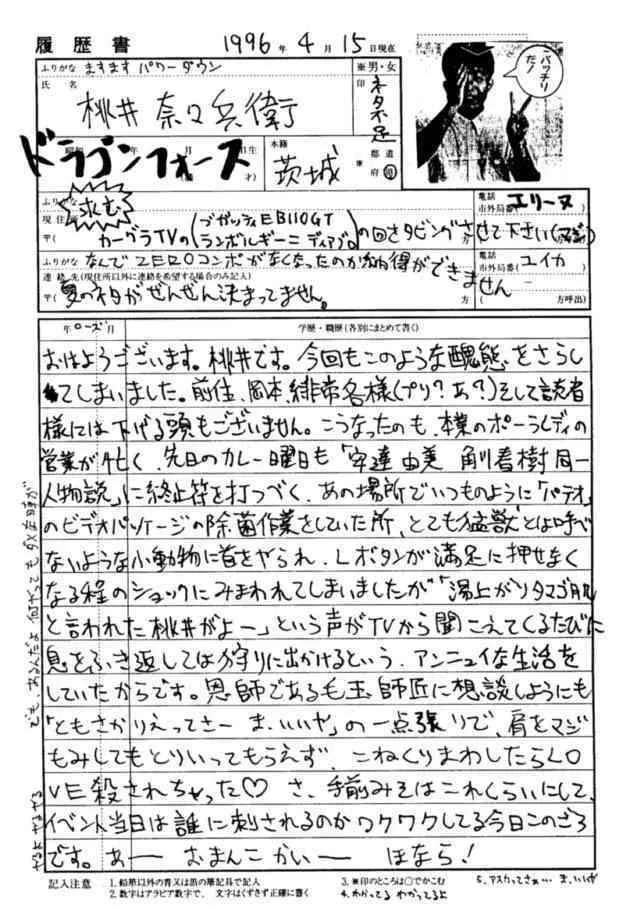 履歴書 1996年4月15日現在
ふりがな ますます パワーダウン ※男・女
氏名 桃井 奈々兵衛 印 ネタ不足
バッチリだ!
ドラゴンフォース
本籍 茨城 都道府県
ふりがな 求む 電話 エリーヌ
現住所 市外局番( )
〒( カーグラTVの(ブガッティEB110GT ランボルギーニディアブロ)の回をダビングさせて下さい(マジ)
ふりがな なんでZEROコンボがなくなったのか納得ができません 電話 ユイカ
連絡先(現住所以外に連絡を希望する場合のみ記入) 市外局番( )
〒( 夏のネタがぜんぜん決まってません。 方 (方呼出)
年 ローズ 月 学歴・職歴(各別にまとめて書く)
おはようございます。桃井です。今回もこのような醜態をさらし
てしまいました。前住、岡本、緋常各様(プリ?あ?)そして読者
様には下げる頭もございません。こうなったのも、本業のポーラレディの
営業が忙く、先日のカレー曜日も「安達由美 角川春樹同一
人物説」に終止符を打つべく、あの場所でいつものように「パテオ」
のビデオパッケージの除菌作業をしていた所、とても猛獣とは呼べ
ないような小動物に首をやられ、Lボタンが満足に押せなく
なる程のショックにみまわれてしまいましたが「湯上がりタマゴ肌
と言われた桃井がよー」という声がTVから聞こえてくるたびに
息をふき返しては狩りに出かけるという、アンニュイな生活を
していたからです。恩師である毛玉師匠に想談しようにも
「ともさかりえってさー ま、いいや」の一点張りで、肩をマジ
もみしてもとりいってもらえず、こねくりまわしたらLO
VE殺されちゃった♡ さ、手前みそはこれくらいにして、
イベント当日は誰に刺されるのかワクワクしてる今日このごろ
です。あー おまんこ かいー ほなら!
でも、あるんだよ 何がっても
やるよ やるやる
記入注意 1.鉛筆以外の青又は黒の筆記具で記入 3.※印のところは○でかこむ 5.アスカってさぁ… ま、いいや
2.数字はアラビア数字で、文字はくずさず正確に書く 4.わかってる わかってるよ